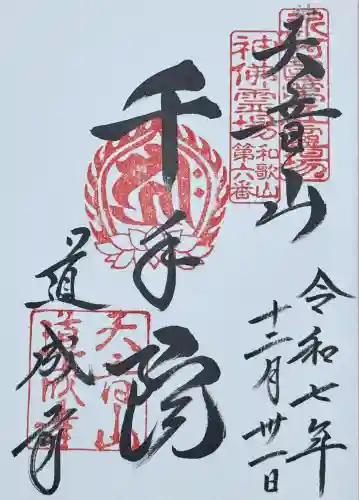 天音山
社佛霊場
和歌山
第六番
千手院
道成寺
天音山
道成寺
令和七年
十二月卅一日